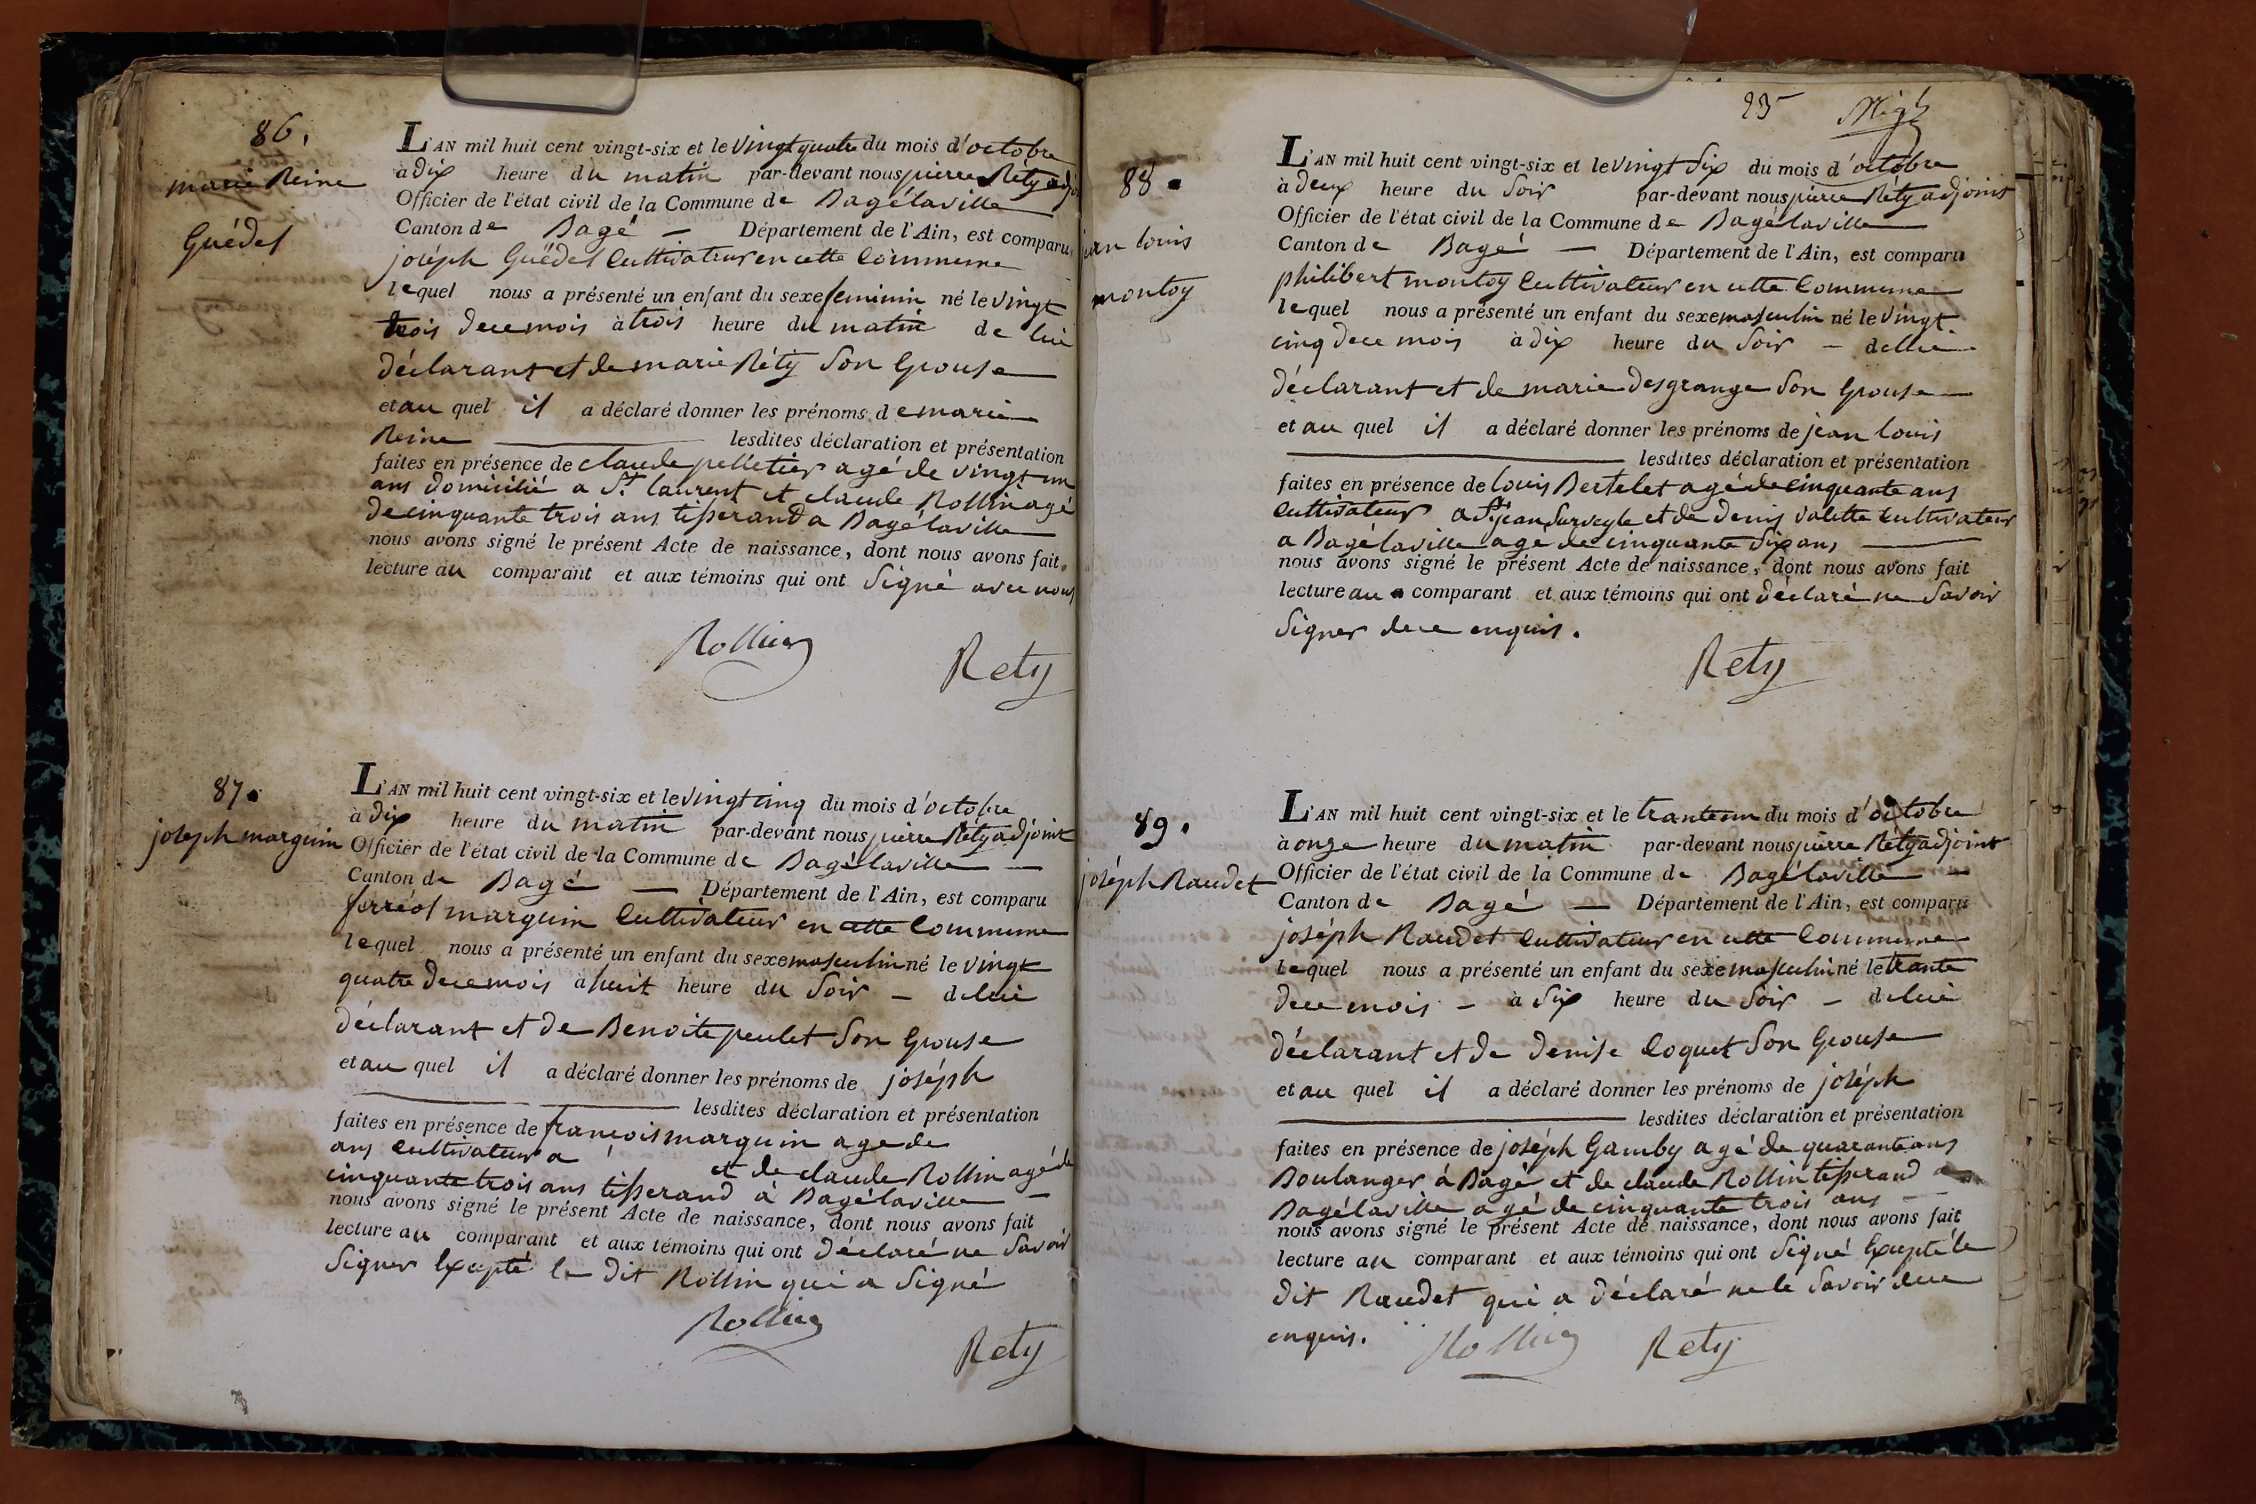 86.
marie Reine
Guédel
L'AN mil huit cent vingt-six et le vingt quatre du mois d'octobre
à dix heure du matin par-devant nous pierre Réty adj
Officier de l'état civil de la Commune de Bagélaville
Canton de Bagé — Département de l'Ain, est comparu
joséph Guédel Cultivateur en cette Commune
lequel nous a présenté un enfant du sexe feminin né le vingt
trois de ce mois à trois heure du matin de lui
déclarant et de marie Réty Son Epouse
et au quel il a déclaré donner les prénoms de marie
Reine lesdites déclaration et présentation
faites en présence de claude pelletier agé de vingt un
ans domicilié a St laurent et claude Rollin agé
de cinquante trois ans tisserand a Bagélaville
nous avons signé le présent Acte de naissance, dont nous avons fait
lecture au comparant et aux témoins qui ont Signé avec nous
Rollin
Rety
87.
joseph marguin
L'AN mil huit cent vingt-six et le vingt cinq du mois d'octobre
à dix heure du matin par-devant nous pierre Réty adjoint
Officier de l'état civil de la Commune de Bagélaville
Canton de Bagé — Département de l'Ain, est comparu
ferréol marguin Cultivateur en cette Commune
lequel nous a présenté un enfant du sexe masculin né le vingt
quatre de ce mois à huit heure du Soir — de lui
déclarant et de Benoite peulet Son Epouse
et au quel il a déclaré donner les prénoms de joséph
lesdites déclaration et présentation
faites en présence de francois marguin age de
ans cultivateur a et de claude Rollin agé de
cinquante trois ans tisserand à Bagélaville
nous avons signé le présent Acte de naissance, dont nous avons fait
lecture au comparant et aux témoins qui ont Déclaré ne Savoir
Signer Excepté le dit Rollin qui a Signé
Rollin
Rety
23
88.
jean louis
montoy
L'AN mil huit cent vingt-six et le vingt Six du mois d'octobre
à deux heure du Soir par-devant nous pierre Réty adjoint
Officier de l'état civil de la Commune de Bagélaville
Canton de Bagé — Département de l'Ain, est comparu
philibert montoy Cultivateur en cette Commune
lequel nous a présenté un enfant du sexe masculin né le vingt
cinq de ce mois à dix heure du Soir — de lui
déclarant et de marie desgrange Son Epouse
et au quel il a déclaré donner les prénoms de jean louis
lesdites déclaration et présentation
faites en présence de louis Bertelet agé de cinquante ans
Cultivateur a St jean Surveyle et de denis valette cultivateur
a Bagélaville agé de cinquante Six ans
nous avons signé le présent Acte de naissance, dont nous avons fait
lecture au comparant et aux témoins qui ont déclaré ne Savoir
Signer de ce enquis.
Rety
89.
joséph Raudet
L'AN mil huit cent vingt-six et le trante un du mois d'octobre
à onze heure du matin par-devant nous pierre Réty adjoint
Officier de l'état civil de la Commune de Bagélaville
Canton de Bagé — Département de l'Ain, est comparu
joséph Raudet Cultivateur en cette Commune
lequel nous a présenté un enfant du sexe masculin né le trante
de ce mois — à Six heure du Soir — de lui
déclarant et de denise Coquet Son Epouse
et au quel il a déclaré donner les prénoms de joséph
lesdites déclaration et présentation
faites en présence de joséph Gamby agé de quarante ans
Boulanger à Bagé et de claude Rollin tisserand a
Bagélaville agé de cinquante trois ans
nous avons signé le présent Acte de naissance, dont nous avons fait
lecture au comparant et aux témoins qui ont Signé Excepté le
dit Raudet qui a déclaré ne le Savoir de ce
enquis.
Rollin
Rety